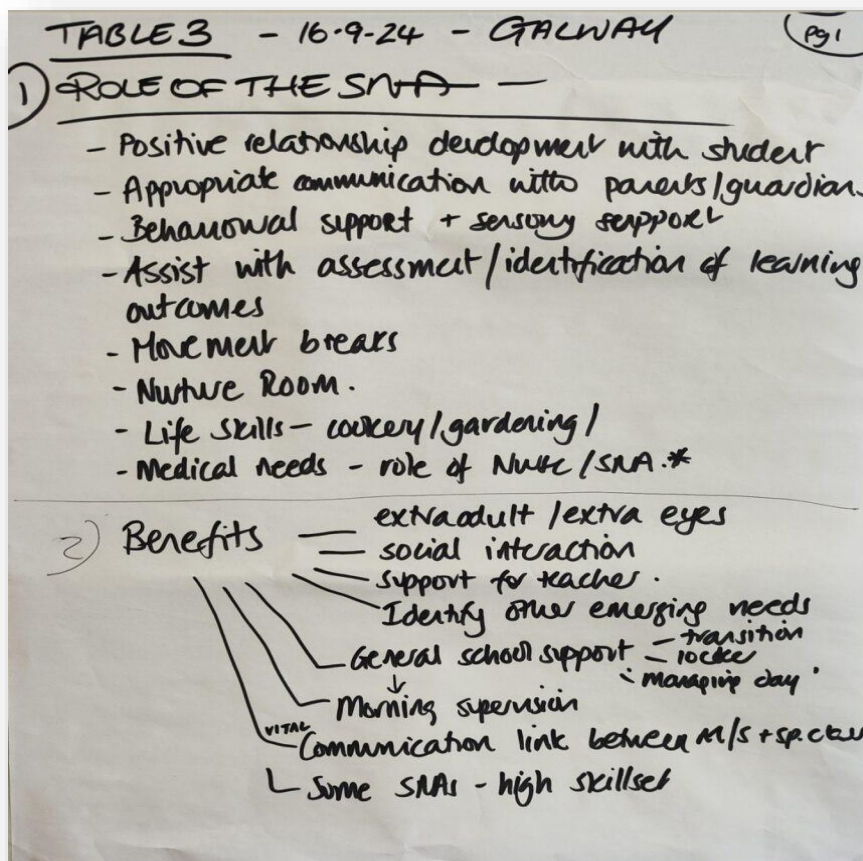 TABLE 3 - 16-9-24 - GALWAY
Pg 1
1) ROLE OF THE SNA -
- Positive relationship development with student
- Appropriate communication with parents/guardian
- Behavioural support + sensory support
- Assist with assessment/identification of learning
outcomes
- Movement breaks
- Nurture Room.
- Life skills - cookery/gardening/
- Medical needs - role of Nurse/SNA.*
2) Benefits
extra adult / extra eyes
- social interaction
- support for teacher.
Identify other emerging needs
- General school support - transition
- locker
- managing day
↓
- Morning supervision
VITAL
- Communication link between M/S + sp. clas
Some SNAs - high skillset